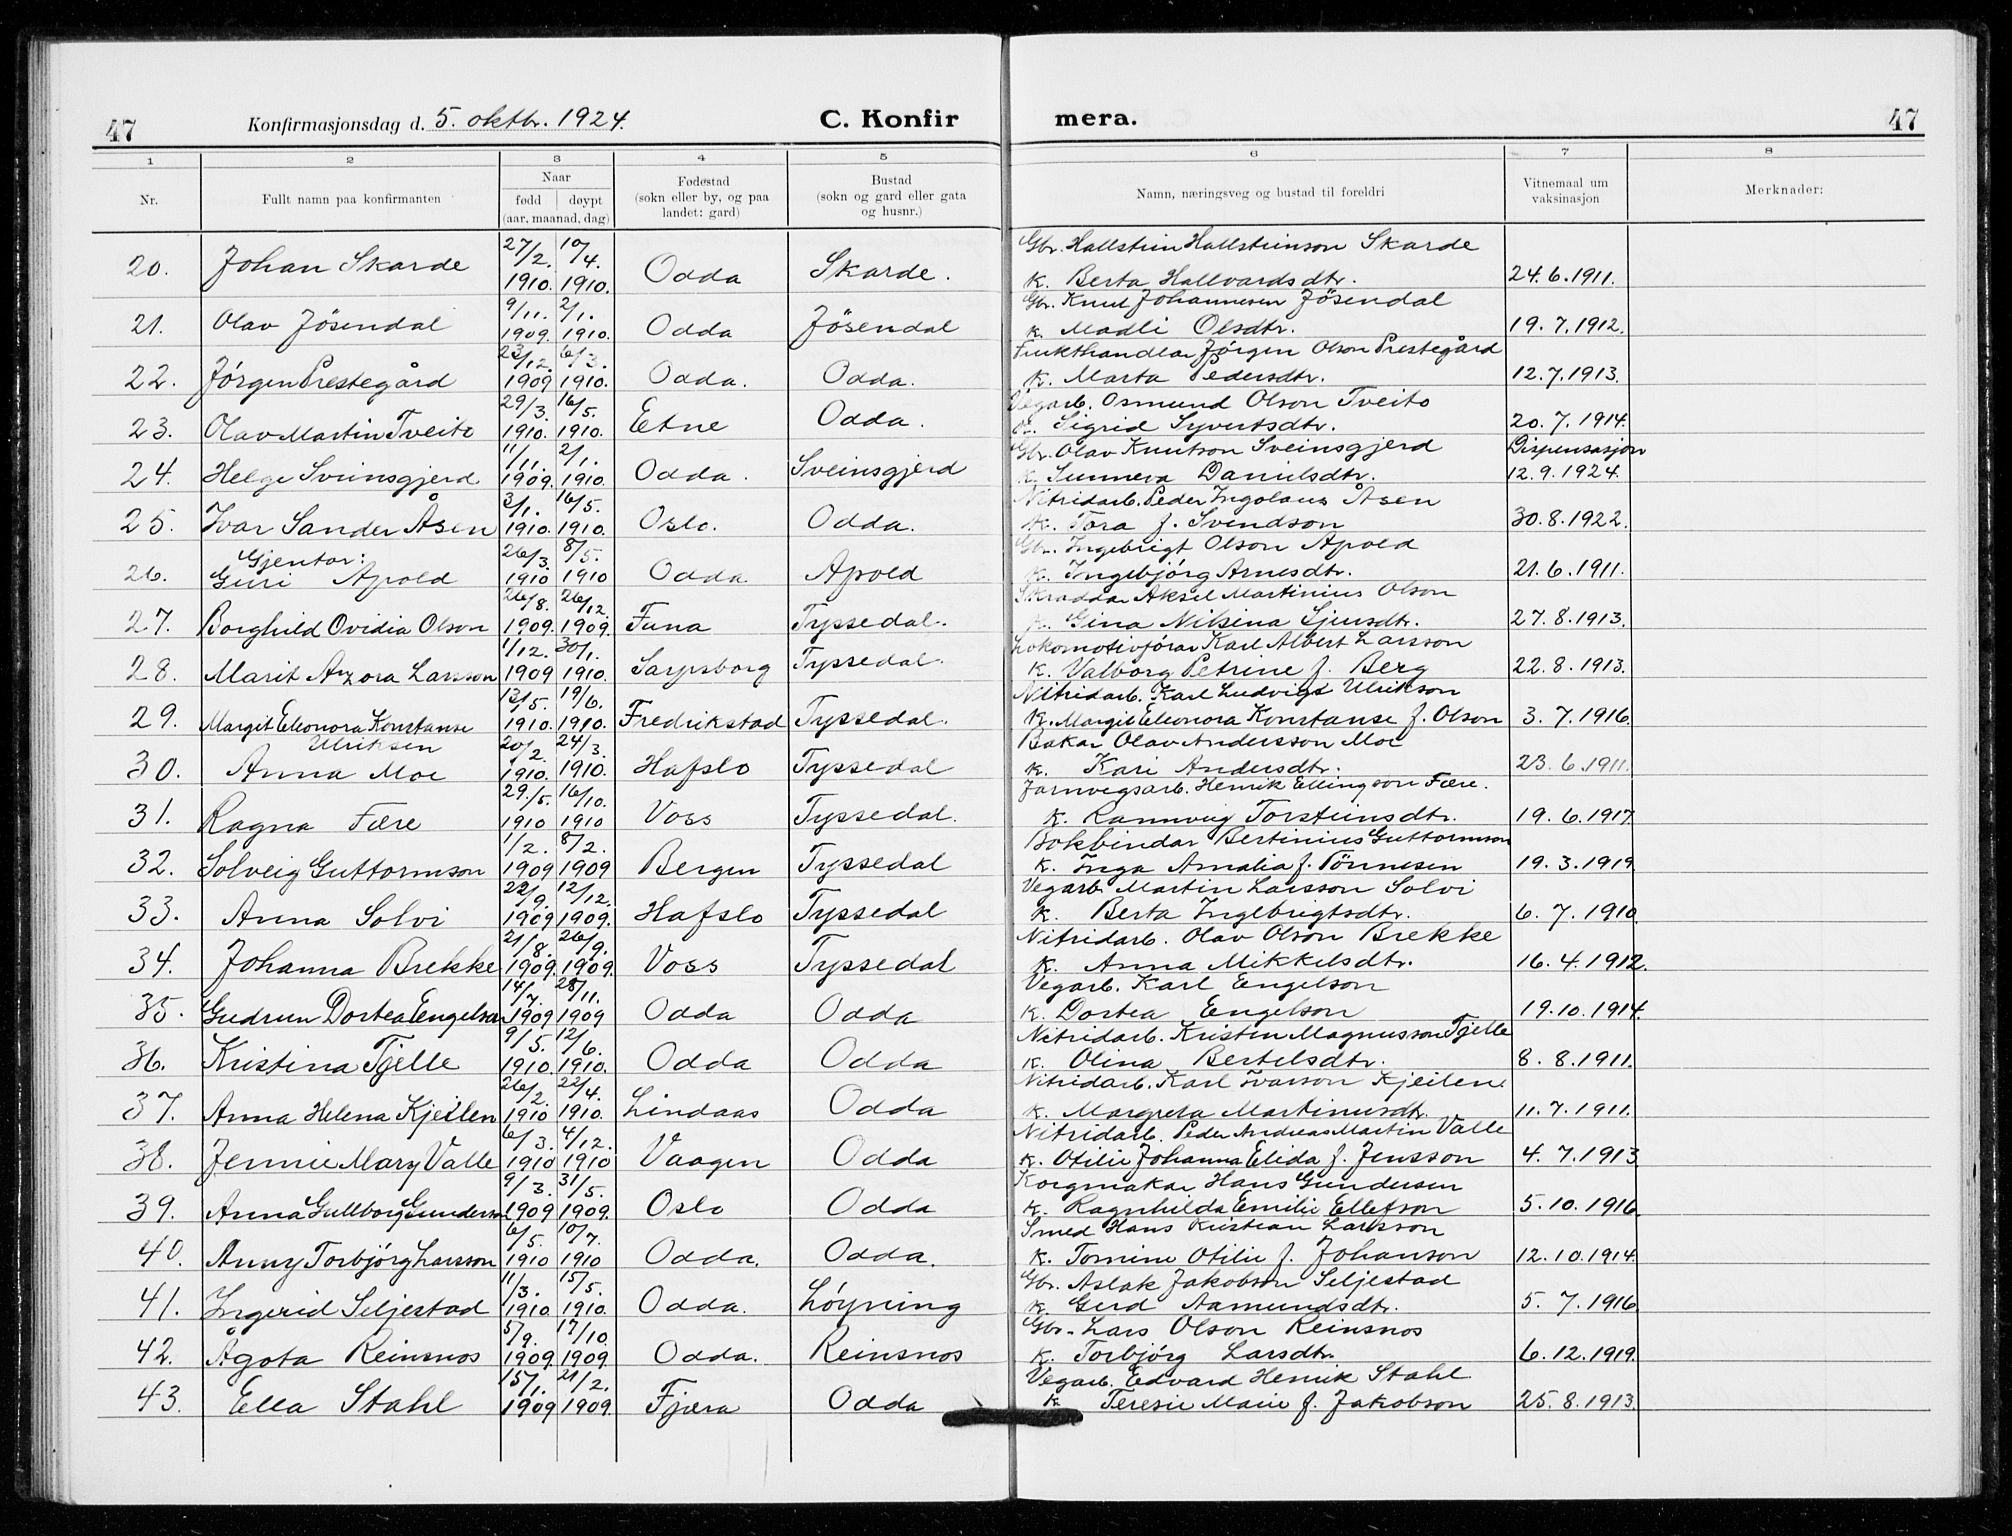 47
Konfirmasjonsdag d. 5. oktbr. 1924.
C. Konfirmera.
47
1 2 3 4 5 6 7 8
Nr. Fullt namn paa konfirmanten Naar fødd døypt (aar, maanad, dag) Fødestad (sokn eller by, og paa landet: gard) Bustad (sokn og gard eller gata og husnr.) Namn, næringsveg og bustad til foreldri Vitnemaal um vaksinasjon Merknader:
27/2. 10/4. Gbr. Hallstein Hallsteinson Skarde
20. Johan Skarde 1910. 1910. Odda Skarde. K. Berta Hallvardsdtr. 24.6.1911.
9/11. 2/1. Gbr. Knut Johannesen Jösendal
21. Olav Jösendal 1909. 1910. Odda Jösendal K. Madli Olsdtr. 19.7.1912.
23/12. 6/3. Frukthandlar Jörgen Olson Prestegård
22. Jörgen Prestegård 1909 1910. Odda. Odda. K. Marta Pedersdtr. 12.7.1913.
29/3. 16/5. Vegarb. Osmund Olson Tveito
23. Olav Martin Tveito 1910. 1910. Etne Odda. K. Sigrid Syvertsdtr. 20.7.1914.
11/11. 2/1. Gbr. Olav Knutson Sveinsgjerd Dispensasjon
24. Helge Sveinsgjerd 1909. 1910. Odda. Sveinsgjerd K. Sunneva Danielsdtr. 12.9.1924.
3/1. 16/5. Nitridarb. Peder Ingolaus Åsen
25. Ivar Sander Åsen 1910. 1910. Oslo. Odda. K. Tora f. Svendson 30.8.1922.
Gjentor: 26/3. 8/5. Gbr. Ingebrigt Olson Apold
26. Guri Apold 1910 1910 Odda Apold K. Ingebjörg Arnesdtr. 21.6.1911.
26/8. 26/12 Skraddar Aksel Martinius Olson
27. Borghild Ovidia Olson 1909. 1909. Funa Tyssedal. K. Gina Nilsina Sjursdtr. 27.8.1913.
1/12. 30/1. Lokomotivförar Karl Albert Larsson
28. Marit Azora Larsson 1909 1910. Sarpsborg Tyssedal. K. Valborg Petrine f. Berg 22.8.1913.
13/5. 19/6. Nitridarb. Karl Ludvigs Ulrikson
29. Margit Eleonora Konstanse 1910. 1910. Fredrikstad Tyssedal. K. Margit Eleonora Konstanse f. Olson 3.7.1916.
Ulriksen 20/2. 24/3. Bakar Olav Andersson Moe
30. Anna Moe 1910. 1910. Hafslo Tyssedal K. Kari Andersdtr. 23.6.1911.
29./5. 16/10. Jarnvegsarb. Henrik Ellingson Fære.
31. Ragna Fære 1910 1910 Voss Tyssedal. K. Rannveig Torsteinsdtr. 19.6.1917.
1/2. 8/2. Bokbindar Bertinius Guttormson
32. Solveig Guttormson 1909 1909 Bergen Tyssedal K. Inga Amalia f. Tönnesen 19.3.1919.
22/9. 12/12. Vegarb. Martin Larsson Solvi
33. Anna Solvi 1909 1909. Hafslo Tyssedal K. Berta Ingebrigtsdtr. 6.7.1910.
21/8. 26/9. Nitridarb. Olav Olson Brekke
34. Johanna Brekke 1909. 1909. Voss Tyssedal K. Anna Mikkelsdtr. 16.4.1912.
14/7. 28/11. Vegarb. Karl Engelson
35. Gudrun Dortea Engelson 1909 1909 Odda Odda K. Dortea Engelson 19.10.1914.
9/5. 12/6. Nitridarb. Kristen Magnusson Tjelle
36. Kristina Tjelle 1910. 1910. Odda Odda K. Olina Bertelsdtr. 8.8.1911.
26/2. 22/4. Nitridarb. Karl Ivarson Kjeilen
37. Anna Helena Kjeilen 1910 1910. Lindaas Odda K. Margreta Martinusdtr. 11.7.1911.
6/3. 4/12. Nitridarb. Peder Andreas Martin Valle
38. Jennie Mary Valle 1910 1910 Vaagen Odda K. Otilie Johanna Elida f. Jensson 4.7.1913
9/3. 31/5. Korgmakar Hans Gundersen
39. Anna Gullborg Gunderson 1909 1909. Oslo Odda K. Ragnhilda Emilie Ellefson 5.10.1916.
6/5. 10/7. Smed Hans Kristian Larsson
40. Anny Torbjörg Larsson 1910 1910 Odda. Odda. K. Tomine Otilie f. Johanson 12.10.1914.
11/3. 15/5. Gbr. Aslak Jakobson Seljestad
41. Ingerid Seljestad 1910. 1910. Odda. Löyning K. Gerd Aamundsdtr. 5.7.1916
5/9. 17/10. Gbr. Lars Olson Reinsnos
42. Ågota Reinsnos 1909. 1909. Odda. Reinsnos K. Torbjörg Larsdtr. 6.12.1919.
15/1. 21/2. Vegarb. Edvard Henrik Stahl
43. Ella Stahl 1909 1909. Fjæra Odda K Teresie Marie f. Jakobson 25.8.1913.